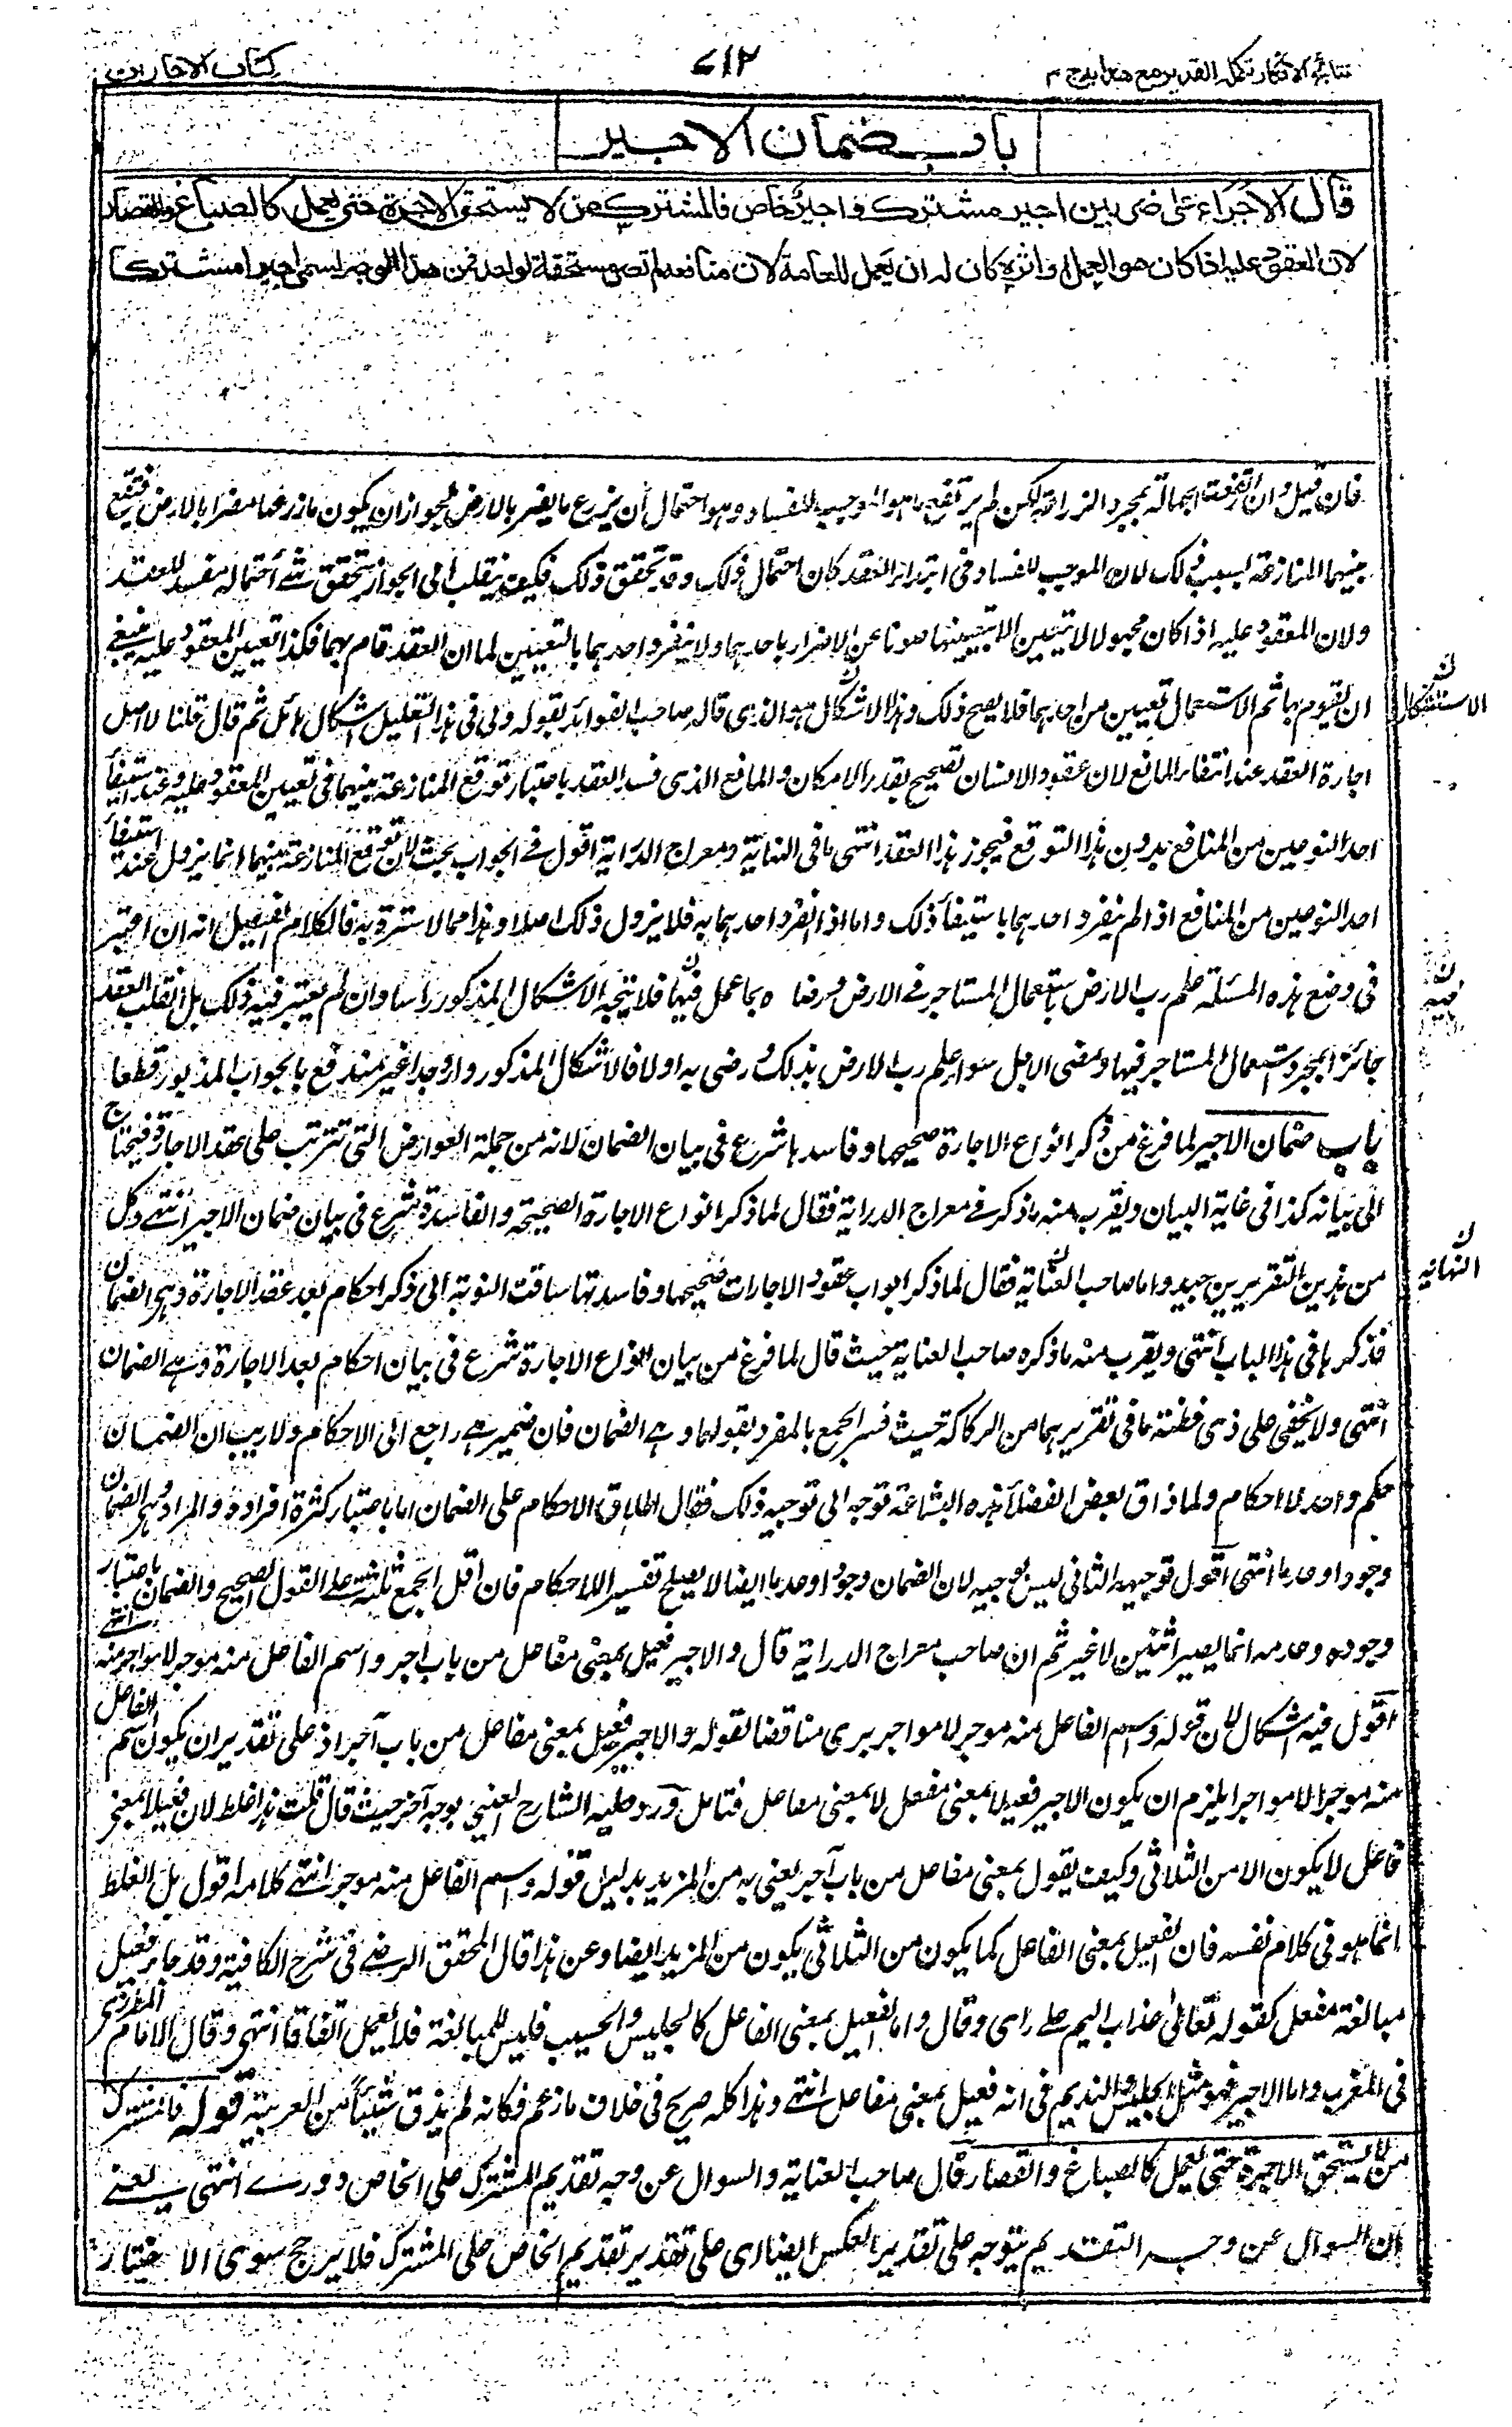 نتائج الافکار تکملہ فتح القدیر مع هدایه ج ٣
٧١٢
کتاب الاجارات
باب ضمان الاجیر
قال الاجراء علی ضربین اجیر مشترک و اجیر خاص فالمشترک من لا یستحق الاجرة حتی یعمل کالصباغ والقصار
لان المعقود علیه اذا کان هو العمل او اثره کان له ان یعمل للعامة لان منافعه لم تصر مستحقة لواحد فمن هذا الوجه یسمی اجیرا مشترکا
فان قیل وان ارتفعت الجهالة بمجرد الزراعة لکن لم یرتفع ما هو الموجب للفساد وهو احتمال أن یزرع ما یضر بالارض لجواز ان یکون ما زرعها مضرا بالارض فتقع
بینهما المنازعة بسبب ذلک لان الموجب للفساد فی ابتداء العقد کان احتمال ذلک وقد تحقق ذلک فکیف ینقلب الی الجواز بتحقق شئ احتماله مفسد للعقد
ولان المعقود علیه اذا کان مجهولا لا یتعین الا بتعیینهما صونا عن الاضرار باحدهما ولا ینفرد احدهما بالتعیین لما ان العقد قام بهما فکذا تعیین المعقود علیه ینبغی
ان یقوم بهما ثم الاستعمال تعیین من احدهما فلا یصح ذلک وهذا الاشکال هو الذی قاله صاحب الفوائد بقوله ولی فی هذا التعلیل اشکال هائل ثم قال قلنا الاصل
الاستشکال ن
اجازة العقد عند انتفاء المانع لان عقود الانسان تصحیح بقدر الامکان والمانع الذی فسد العقد باعتبار توقع المنازعة بینهما فی تعیین المعقود علیه وعند استیفأ
احد النوعین من المنافع یدون هذا التوقع فیجوز هذا العقد انتهی ما فی النهایة ومعراج الدرایة اقول فی الجواب بحث لان توقع المنازعة بینهما انما یزول عند استیفأ
احد النوعین من المنافع اذا لم ینفرد احدهما باستیفأ ذلک واما اذا انفرد احدهما به فلا یزول ذلک اصلا وهذا مما لا سترة به فالکلام الفیصل انه ان اعتبر
فی وضع هذه المسئلة علم رب الارض باستعمال المستاجر فی الارض ورضاه بما عمل فیها فلا یتجه الاشکال المذکور راسا وان لم یعتبر فیه ذلک بل انقلب العقد
فیه ن
جائزا بمجرد استعمال المستاجر فیها ومضی الاجل سواء علم رب الارض بذلک ورضی به اولا فالاشکال المذکور وارد جدا غیر مندفع بالجواب المذبور قطعا
باب ضمان الاجیر لما فرغ من ذکر انواع الاجارة صحیحها وفاسدها شرع فی بیان الضمان لانه من جملة العوارض التی تترتب علی عقد الاجارة فیحتاج
الی بیانه کذا فی غایة البیان ویقرب منه ما ذکر فی معراج الدرایة فقال لما ذکر انواع الاجارة الصحیحة والفاسدة شرع فی بیان ضمان الاجیر انتهی وکل
من هذین التقریرین جید واما صاحب العنایة فقال لما ذکر ابواب عقود الاجارات صحیحها وفاسدتها ساقت النوبة الی ذکر احکام بعد عقد الاجارة وهی الضمان
النهایه ن
فذکرها فی هذا الباب انتهی ویقرب منه ما ذکره صاحب العنایة حیث قال لما فرغ من بیان انواع الاجارة شرع فی بیان احکام بعد الاجارة وهی الضمان
انتهی ولا یخفی علی ذی فطنة ما فی تقریرهما من الرکاکة حیث فسر الجمع بالمفرد بقولهما وهی الضمان فان ضمیر هی راجع الی الاحکام ولا ریب ان الضمان
حکم واحد لا احکام ولما ذاق بعض الفضلأ هذه البشاعة توجه الی توجیه ذلک فقال اطلاق الاحکام علی الضمان اما باعتبار کثرة افراده والمراد وهی الضمان
وجودا وعدما انتهی اقول توجیهه الثانی لیس بوجیه لان الضمان وجودا وعدما ایضا لا یصلح تفسیرا للاحکام فان اقل الجمع ثلثة علی القول الصحیح والضمان باعتبار
وجوده وعدمه انما یصیر اثنین لا غیر ثم ان صاحب معراج الدرایة قال والاجیر فعیل بمعنی مفاعل من باب آجر واسم الفاعل منه موجر لا مواجر منه انتهی
اقول فیه اشکال لان قوله واسم الفاعل منه موجر لا مواجر یری مناقضا لقوله والاجیر فعیل بمعنی مفاعل من باب آجر اذ علی تقدیر ان یکون اسم الفاعل
منه موجرا لا مواجرا یلزم ان یکون الاجیر فعیلا بمعنی مفعل لا بمعنی مفاعل فتامل ورد علیه الشارح العینی بوجه آخر حیث قال قلت هذا غلط لان فعیلا بمعنی
فاعل لا یکون الا من الثلاثی وکیف یقول بمعنی مفاعل من باب آجر یعنی به من المزید بدلیل قوله واسم الفاعل منه موجر انتهی کلامه اقول بل الغلط
انما هو فی کلام نفسه فان الفعیل بمعنی الفاعل کما یکون من الثلاثی یکون من المزید ایضا وعن هذا قال المحقق الرضی فی شرح الکافیة وقد جاء فعیل
مبالغة مفعل کقوله تعالی عذاب الیم علی رای وقال واما الفعیل بمعنی الفاعل کالجلیس والحسیب فلیس للمبالغة فلا یعمل اتفاقا انتهی وقال الامام المطرزی
فی المغرب واما الاجیر فهو مثل الجلیس والندیم فی انه فعیل بمعنی مفاعل انتهی وهذا کله صریح فی خلاف ما زعم فکانه لم یذق شیئا من العربیة قوله فالمشترک
من لا یستحق الاجرة حتی یعمل کالصباغ والقصار قال صاحب العنایة والسوال عن وجه تقدیم المشترک علی الخاص دوری انتهی یعنی
ان السوال عن وجه التقدیم یتوجه علی تقدیر العکس ایضا ای علی تقدیر تقدیم الخاص علی المشترک فلا یرجح سوی الاختیار